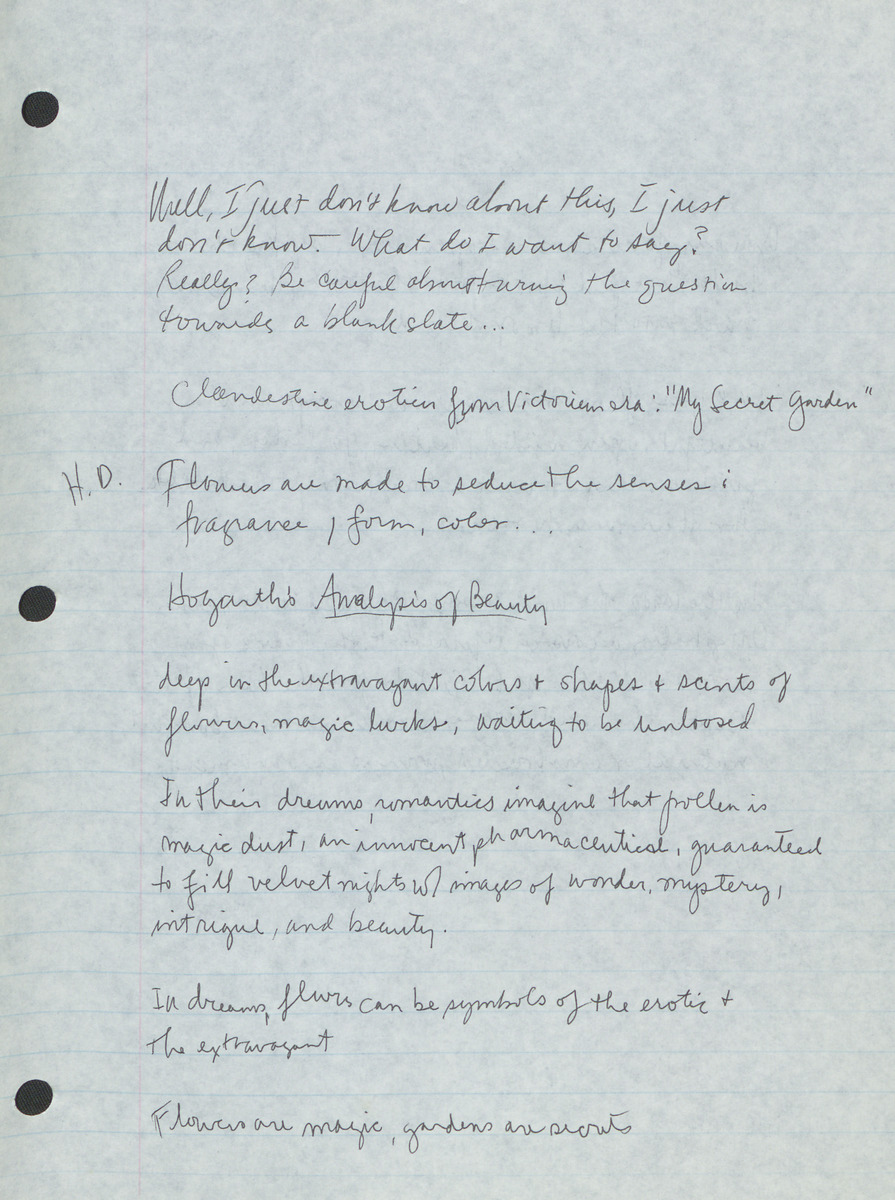 Well, I just don't know about this, I just
don't know. What do I want to say?
Really? Be careful about turning the question
towards a blank slate...
Clandestine erotica from Victorian era: "My Secret Garden"
H.D. Flowers are made to seduce the senses:
fragrance, form, color...
Hogarth's Analysis of Beauty
deep in the extravagant colors + shapes + scents of
flowers, magic lurks, waiting to be unloosed
In their dreams, romantics imagine that pollen is
magic dust, an innocent pharmaceutical, guaranteed
to fill velvet nights w/ images of wonder, mystery,
intrigue, and beauty.
In dreams, flowers can be symbols of the erotic +
the extravagant
Flowers are magic, gardens are secrets